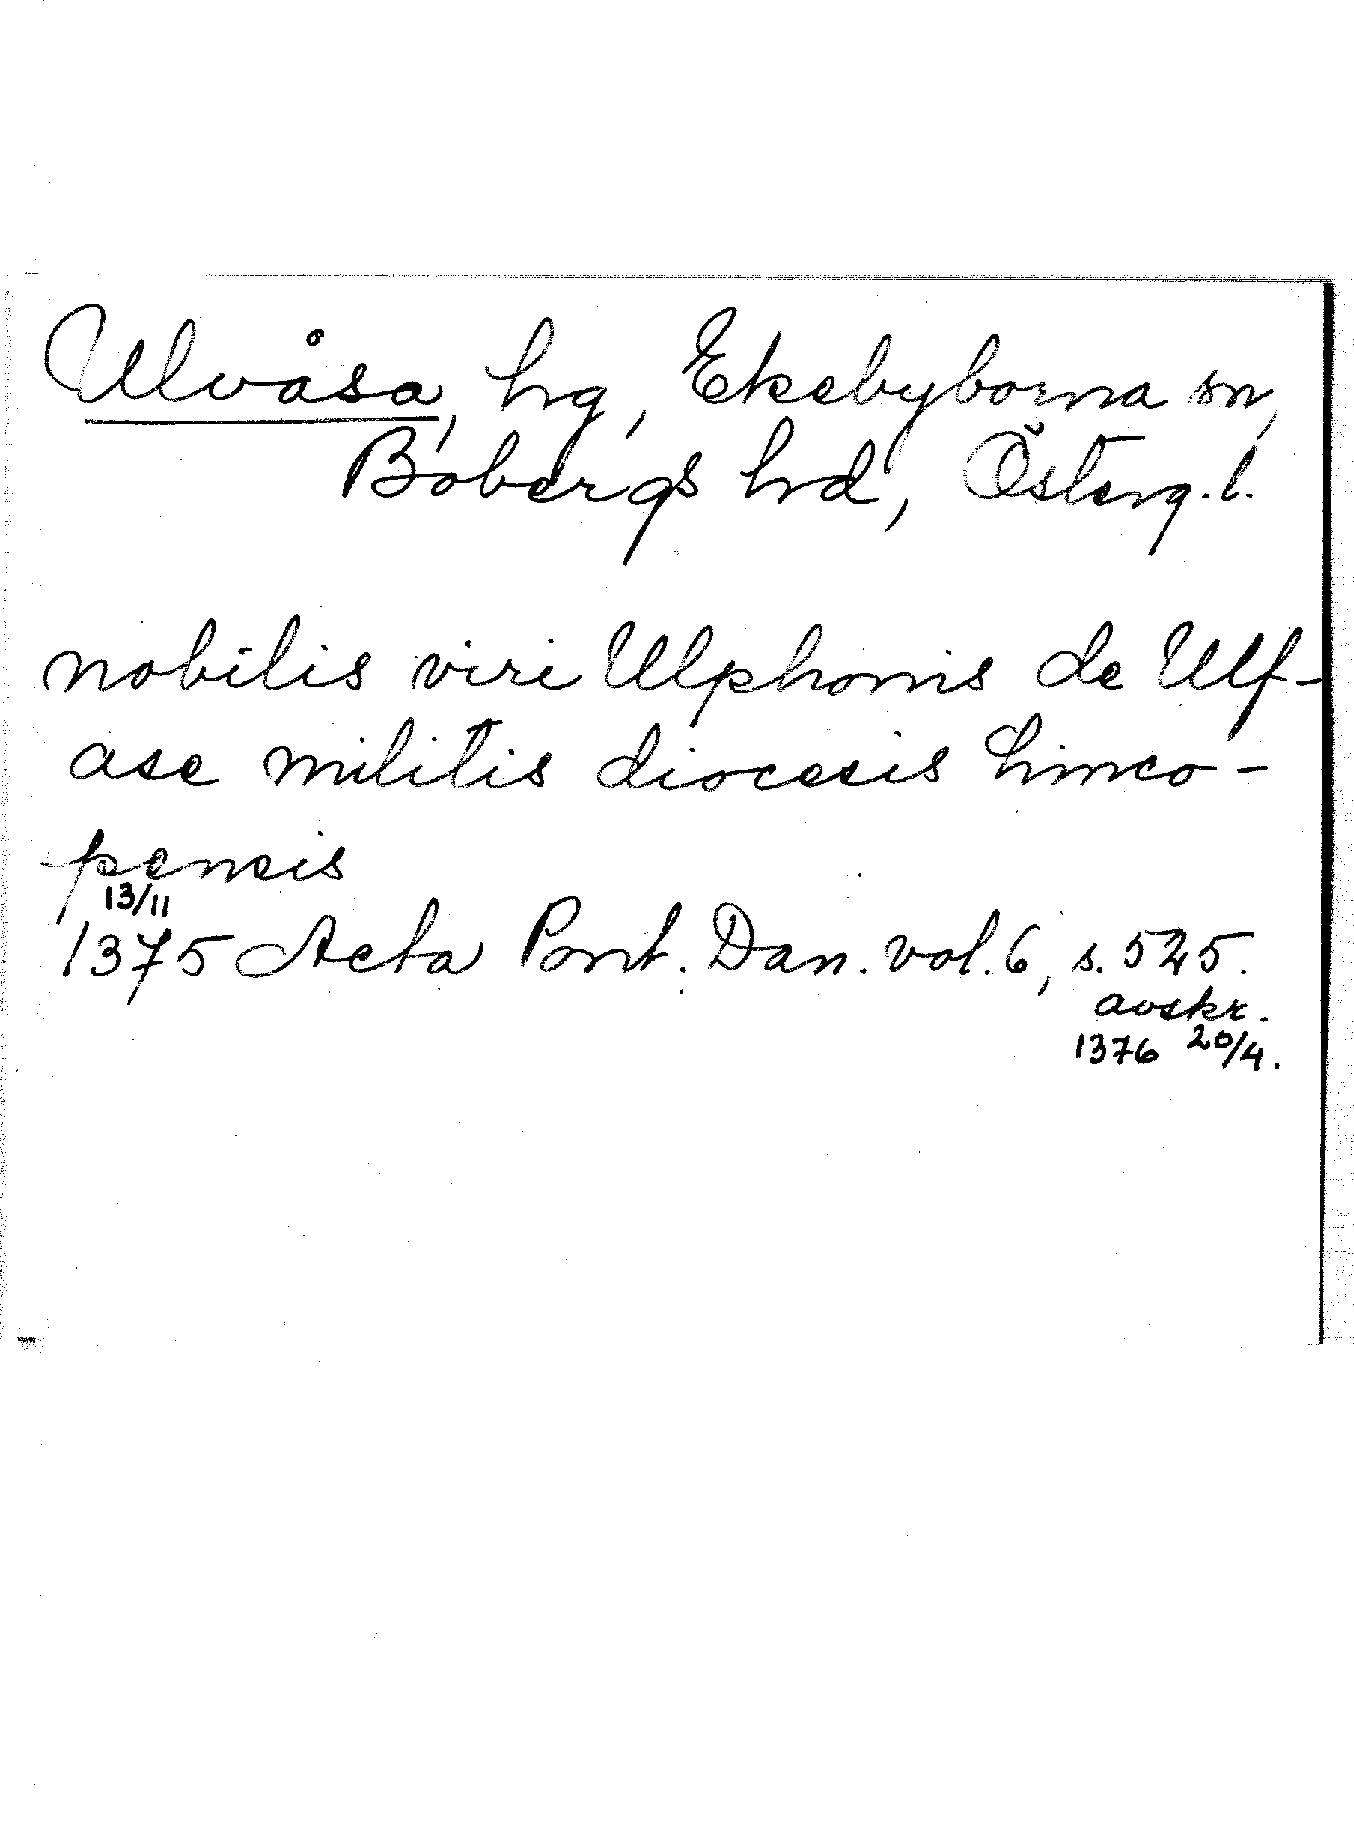 Ulvåsa, hrg, Ekebyborna sn,
Bobergs hrd, Österg.l.
nobilis viri Ulphonis de Ulf-
ase militis diocesis Linco-
pensis
13/11
1375 Acta Pont. Dan. vol. 6, s. 525.
avskr.
1376 20/4.